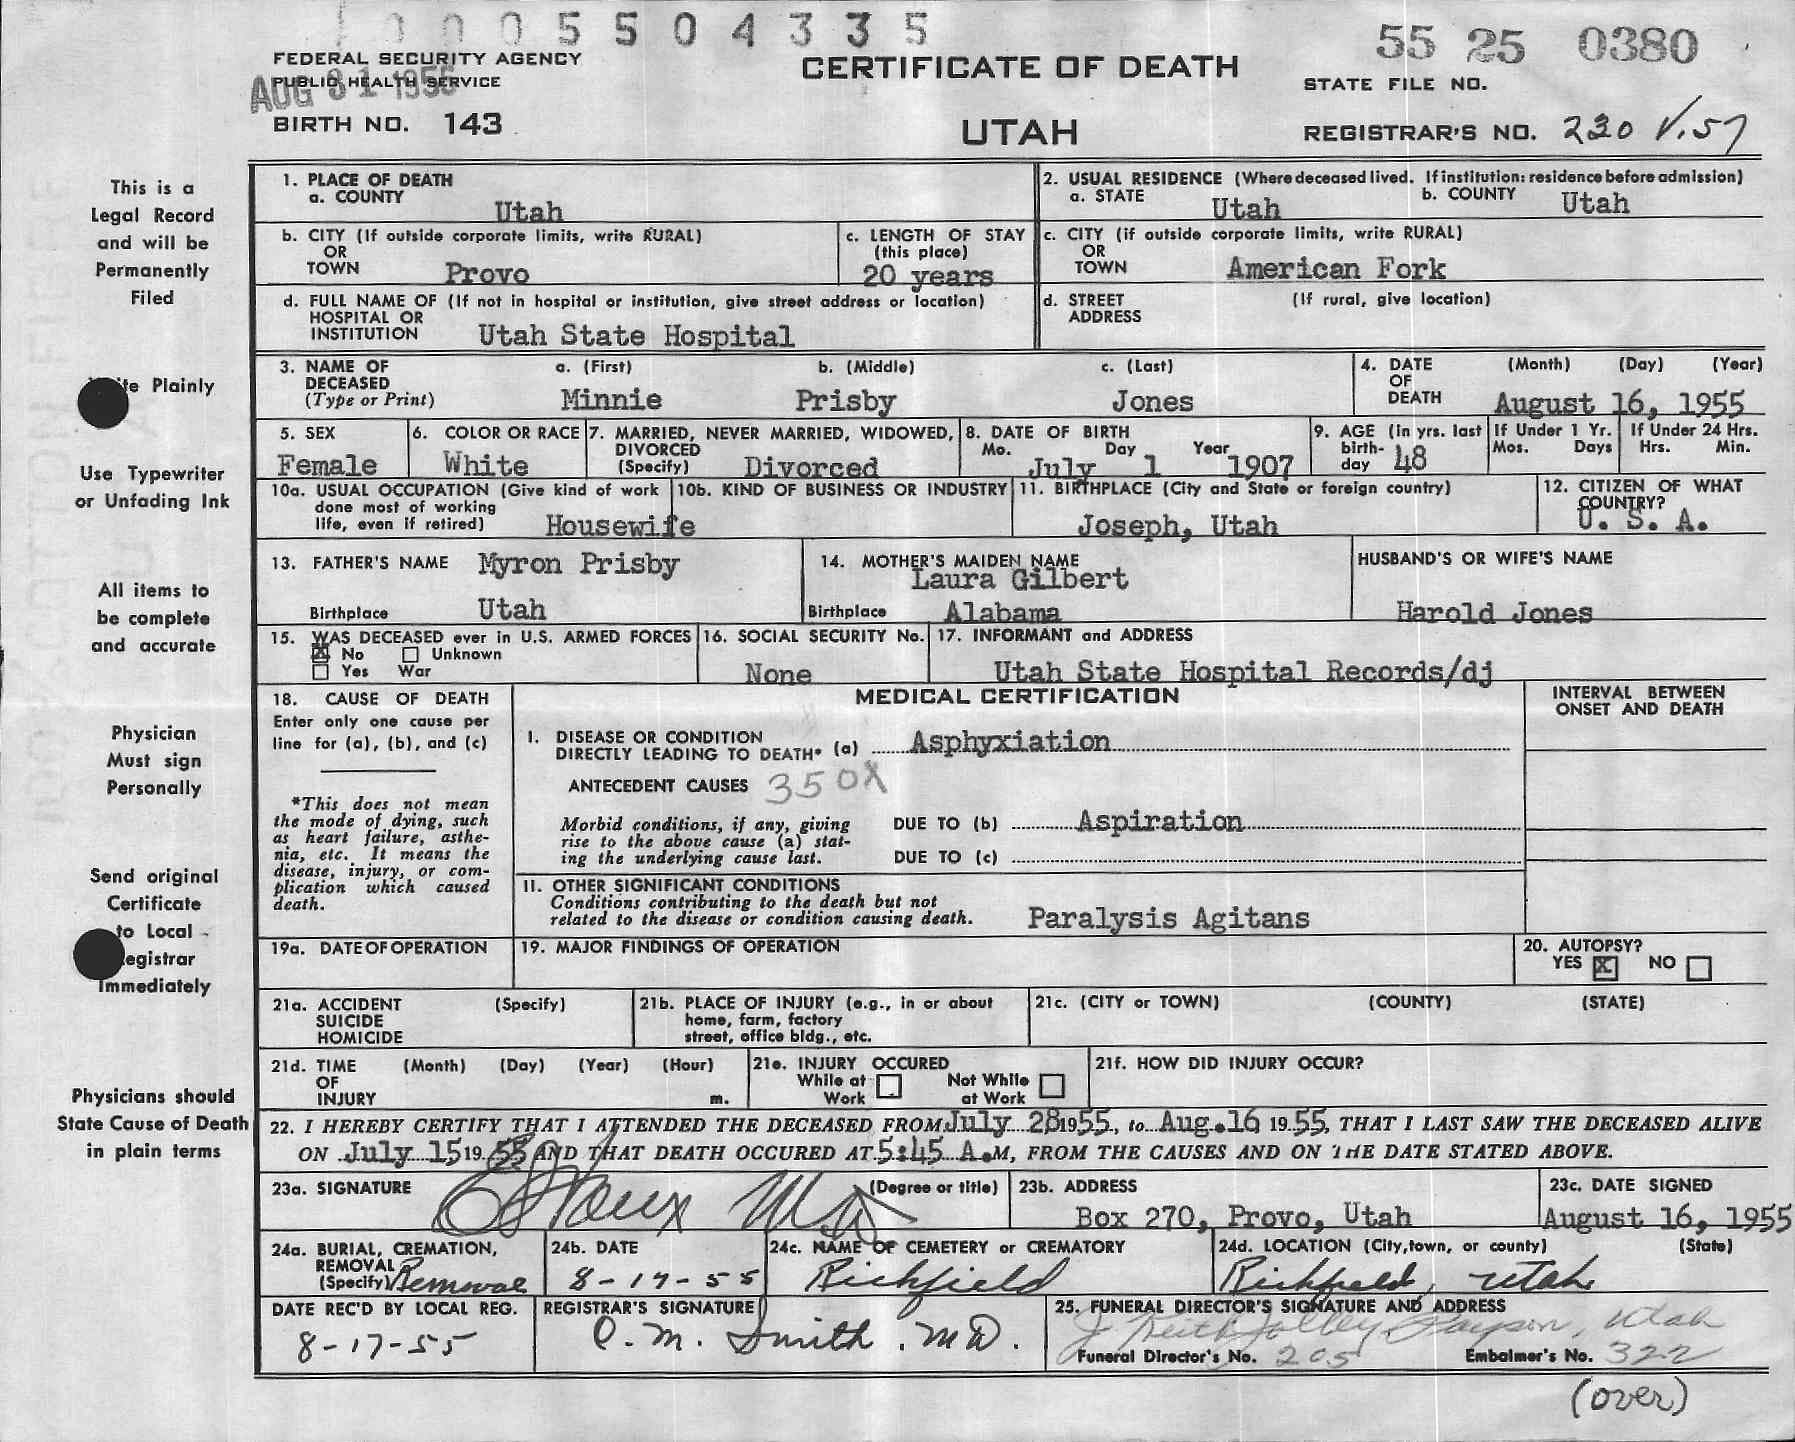 0005504335
55 25 0380
FEDERAL SECURITY AGENCY
PUBLIC HEALTH SERVICE
AUG 31 1955
BIRTH NO. 143
CERTIFICATE OF DEATH
UTAH
STATE FILE NO.
REGISTRAR'S NO. 230 V.57
This is a
Legal Record
and will be
Permanently
Filed
Plainly
Use Typewriter
or Unfading Ink
All items to
be complete
and accurate
Physician
Must sign
Personally
Send original
Certificate
to Local
egistrar
Immediately
Physicians should
State Cause of Death
in plain terms
1. PLACE OF DEATH
a. COUNTY
Utah
2. USUAL RESIDENCE (Where deceased lived. If institution: residence before admission)
a. STATE Utah
b. COUNTY Utah
b. CITY (If outside corporate limits, write RURAL)
OR
TOWN Provo
c. LENGTH OF STAY
(this place)
20 years
c. CITY (if outside corporate limits, write RURAL)
OR
TOWN American Fork
d. FULL NAME OF (If not in hospital or institution, give street address or location)
HOSPITAL OR
INSTITUTION Utah State Hospital
d. STREET (If rural, give location)
ADDRESS
3. NAME OF a. (First) b. (Middle) c. (Last)
DECEASED
(Type or Print) Minnie Prisby Jones
4. DATE (Month) (Day) (Year)
OF
DEATH August 16, 1955
5. SEX
Female
6. COLOR OR RACE
White
7. MARRIED, NEVER MARRIED, WIDOWED,
DIVORCED
(Specify) Divorced
8. DATE OF BIRTH
Mo. Day Year
July 1 1907
9. AGE (in yrs. last
birth-
day 48
If Under 1 Yr.
Mos. Days
If Under 24 Hrs.
Hrs. Min.
10a. USUAL OCCUPATION (Give kind of work
done most of working
life, even if retired) Housewife
10b. KIND OF BUSINESS OR INDUSTRY
11. BIRTHPLACE (City and State or foreign country)
Joseph, Utah
12. CITIZEN OF WHAT
COUNTRY?
U. S. A.
13. FATHER'S NAME Myron Prisby
Birthplace Utah
14. MOTHER'S MAIDEN NAME
Laura Gilbert
Birthplace Alabama
HUSBAND'S OR WIFE'S NAME
Harold Jones
15. WAS DECEASED ever in U.S. ARMED FORCES
X No Unknown
Yes War
16. SOCIAL SECURITY No.
None
17. INFORMANT and ADDRESS
Utah State Hospital Records/dj
18. CAUSE OF DEATH
Enter only one cause per
line for (a), (b), and (c)
*This does not mean
the mode of dying, such
as heart failure, asthe-
nia, etc. It means the
disease, injury, or com-
plication which caused
death.
MEDICAL CERTIFICATION
INTERVAL BETWEEN
ONSET AND DEATH
I. DISEASE OR CONDITION
DIRECTLY LEADING TO DEATH* (a) Asphyxiation
ANTECEDENT CAUSES 350X
Morbid conditions, if any, giving
rise to the above cause (a) stat-
ing the underlying cause last.
DUE TO (b) Aspiration
DUE TO (c)
II. OTHER SIGNIFICANT CONDITIONS
Conditions contributing to the death but not
related to the disease or condition causing death. Paralysis Agitans
19a. DATE OF OPERATION
19. MAJOR FINDINGS OF OPERATION
20. AUTOPSY?
YES X NO
21a. ACCIDENT (Specify)
SUICIDE
HOMICIDE
21b. PLACE OF INJURY (e.g., in or about
home, farm, factory
street, office bldg., etc.
21c. (CITY or TOWN) (COUNTY) (STATE)
21d. TIME (Month) (Day) (Year) (Hour)
OF
INJURY m.
21e. INJURY OCCURED
While at Work
Not While at Work
21f. HOW DID INJURY OCCUR?
22. I HEREBY CERTIFY THAT I ATTENDED THE DECEASED FROM July 28 1955, to Aug. 16 1955, THAT I LAST SAW THE DECEASED ALIVE
ON July 15 1955 AND THAT DEATH OCCURED AT 5:45 A.M, FROM THE CAUSES AND ON THE DATE STATED ABOVE.
23a. SIGNATURE (Degree or title)
MD
23b. ADDRESS
Box 270, Provo, Utah
23c. DATE SIGNED
August 16, 1955
24a. BURIAL, CREMATION,
REMOVAL
(Specify) Removal
24b. DATE
8-17-55
24c. NAME OF CEMETERY or CREMATORY
Richfield
24d. LOCATION (City, town, or county) (State)
Richfield, Utah
DATE REC'D BY LOCAL REG.
8-17-55
REGISTRAR'S SIGNATURE
O. M. Smith . MD.
25. FUNERAL DIRECTOR'S SIGNATURE AND ADDRESS
J Keith Jolley Payson, Utah
Funeral Director's No. 205
Embalmer's No. 322
(over)